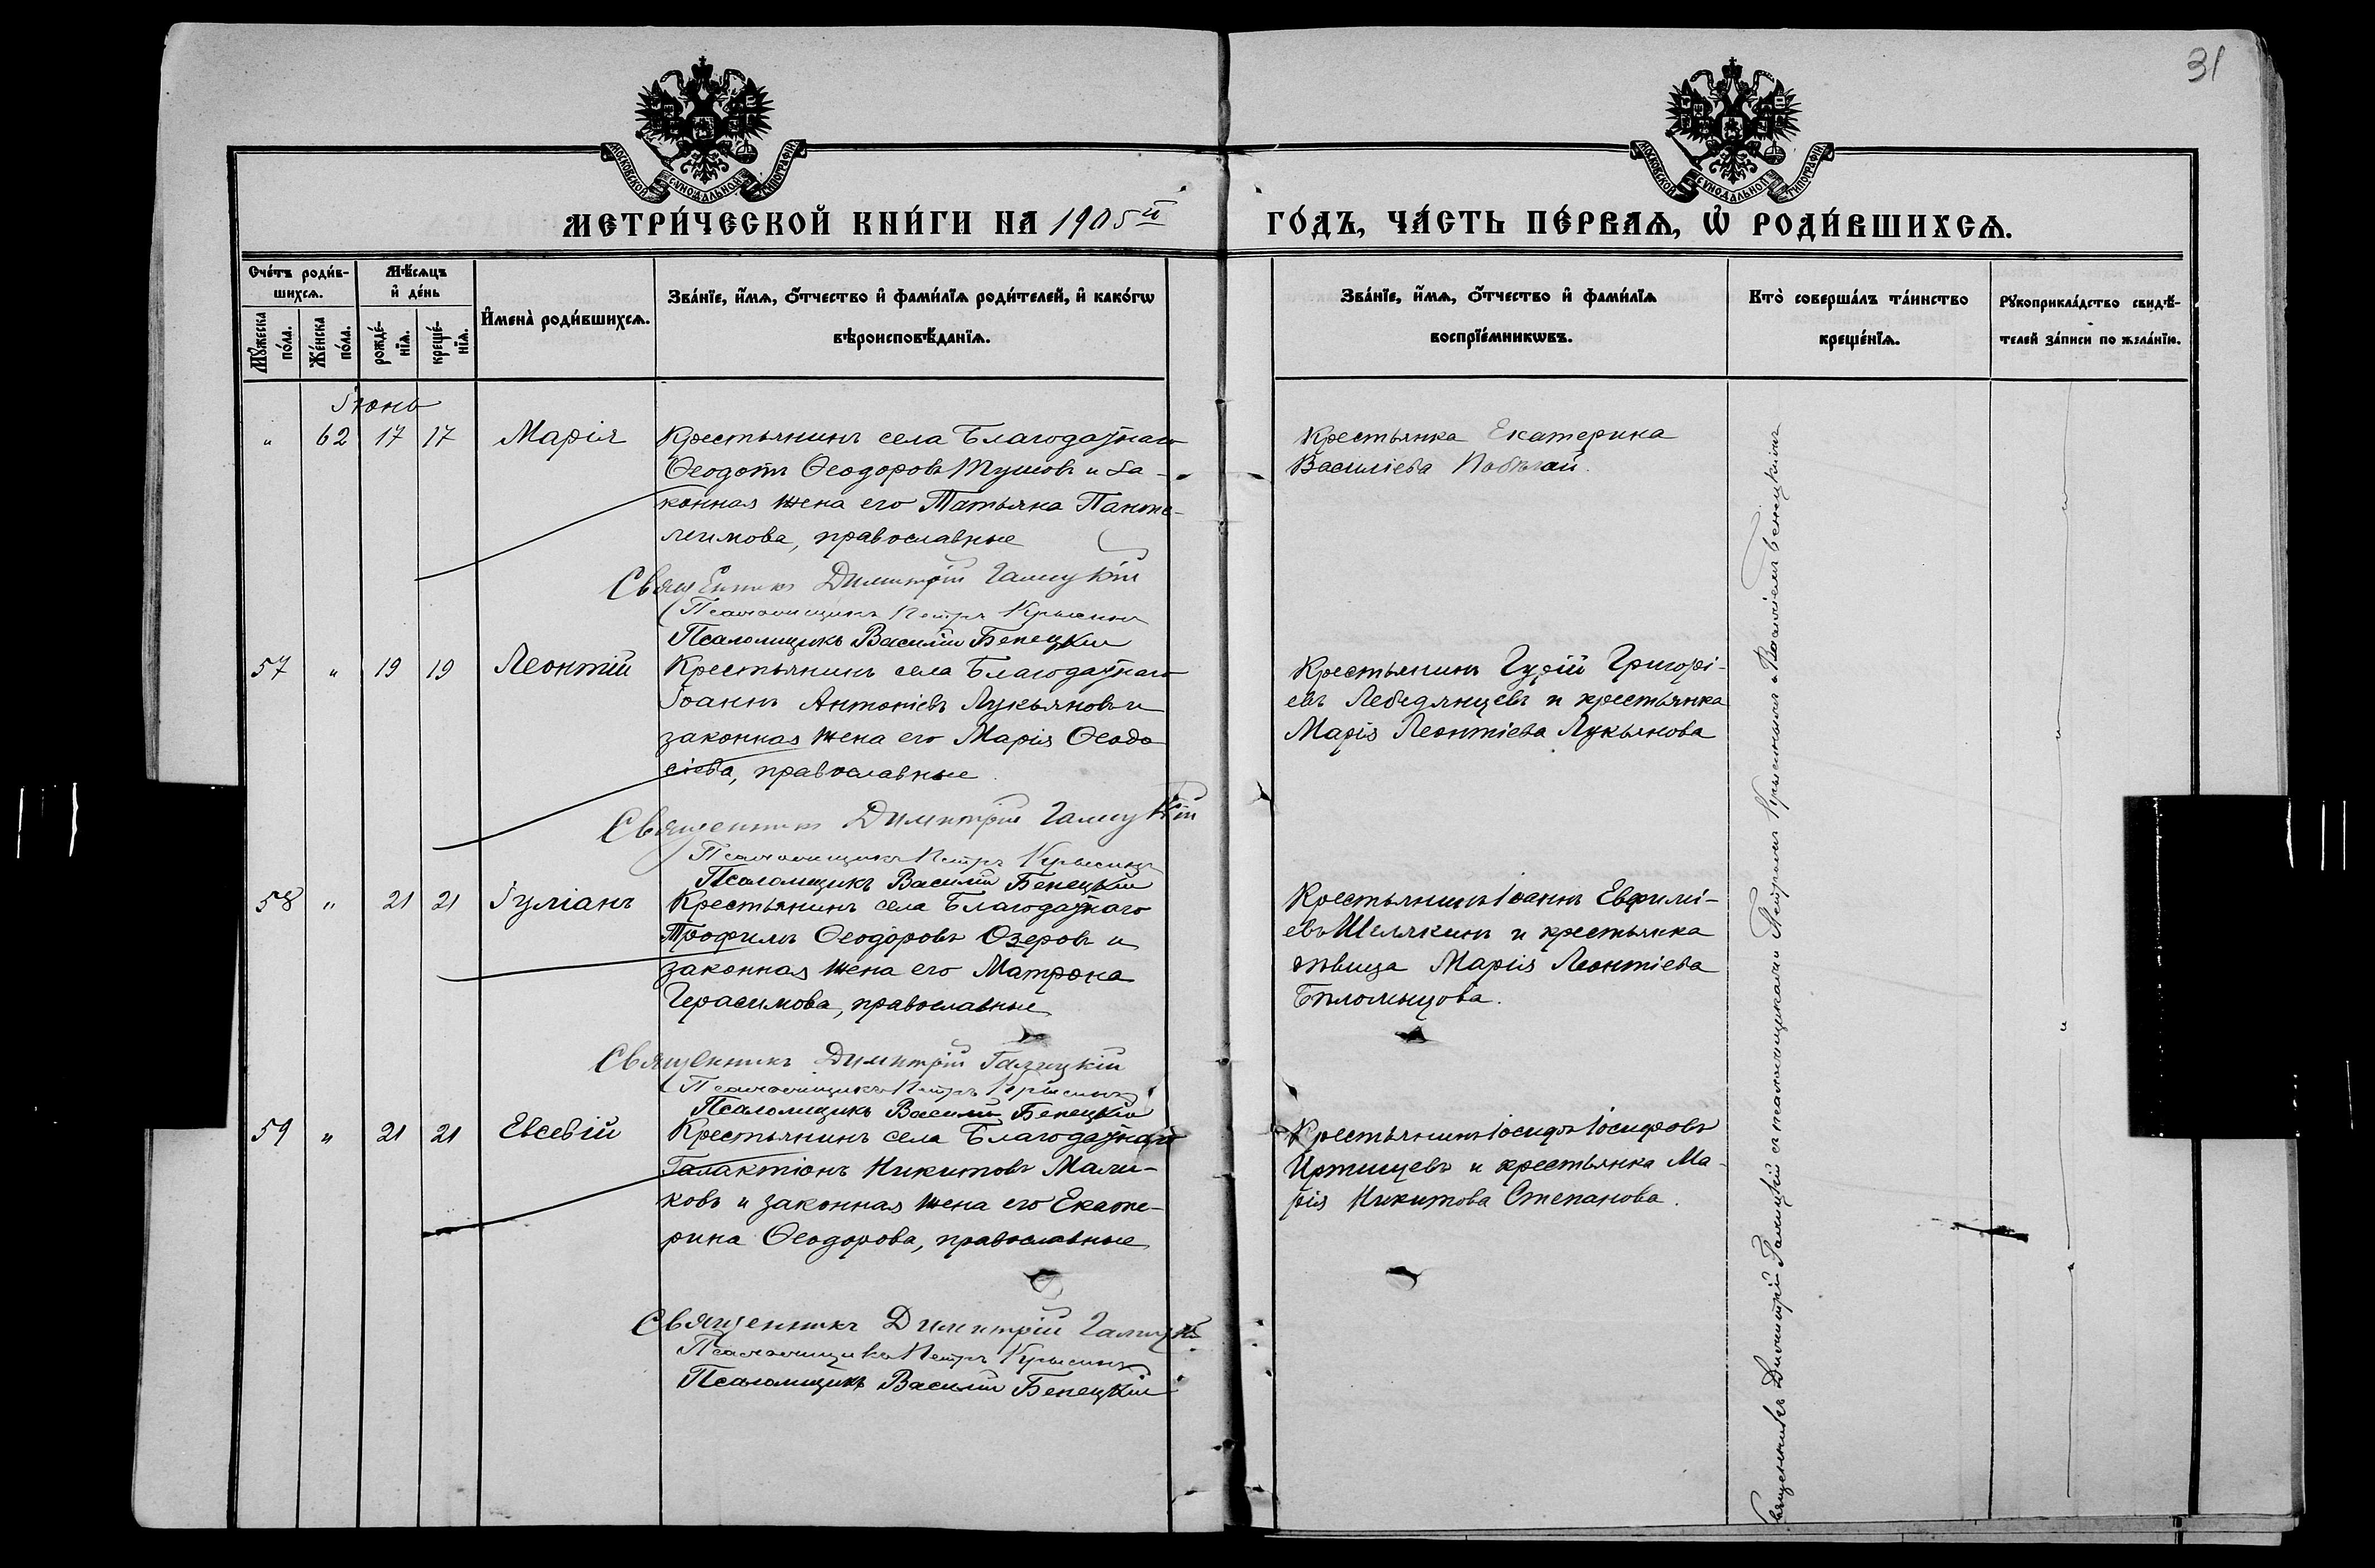 31
МОСКОВСКОЙ СѴНОДАЛЬНОЙ ТИПОГРАФІИ
МОСКОВСКОЙ СѴНОДАЛЬНОЙ ТИПОГРАФІИ
МЕТРИ́ЧЕСКОЙ КНИ́ГИ НА 1905й
ГО́ДЪ, ЧА́СТЬ ПЕ́РВАѦ, Ѡ҆ РОДИ́ВШИХСѦ.
Сче́тъ роди́в-
шихсѧ.
Мѣ́сѧцъ
и҆ де́нь
Мꙋ́жеска
по́ла.
Же́нска
по́ла.
рожде́-
нїѧ.
креще́-
нїѧ.
И҆мена̀ роди́вшихсѧ.
Зва́нїе, и҆́мѧ, ѻ҆́тчество и҆ фами́лїѧ роди́телей, и҆ како́гѡ
вѣроисповѣ́данїѧ.
Зва́нїе, и҆́мѧ, ѻ҆́тчество и҆ фами́лїѧ
воспрїе́мникѡвъ.
Кто̀ соверша́лъ та́инство
креще́нїѧ.
Рꙋкоприкла́дство свидѣ́-
телей за́писи по жела́нїю.
Іюнь
" 62 17 17 Марія
Крестьянинъ села Благодатнаго
Ѳеодотъ Ѳеодоровъ Тушовъ и за-
конная жена его Татьяна Панте-
леимова, православные
Священникъ Димитрій Галицкій
Псаломщикъ Петръ Крысинъ
Псаломщикъ Василій Бенецкій
Крестьянка Екатерина
Василіева
57 " 19 19 Леонтій
Крестьянинъ села Благодатнаго
Іоаннъ Антоніевъ Лукьяновъ и
законная жена его Марія Ѳеодо
сіева, православные.
Священникъ Димитрій Галицкій
Псаломщикъ Петръ Крысинъ
Псаломщикъ Василій Бенецкій
Крестьянинъ Гурій Григорі-
евъ Лебедянцевъ и крестьянка
Марія Леонтіева Лукьянова
58 " 21 21 Іуліанъ
Крестьянинъ села Благодатнаго
Трофимъ Ѳеодоровъ Озеровъ и
законная жена его Матрона
Герасимова, православные
Священникъ Димитрій Галицкій
Псаломщикъ Петръ Крысинъ
Псаломщикъ Василій Бенецкій
Крестьянинъ Іоаннъ Евфимі-
евъ Шелякинъ и крестьянка
дѣвица Марія Леонтіева
59 " 21 21 Евсевій
Крестьянинъ села Благодатнаго
Галактіонъ Никитовъ Мали-
ковъ и законная жена его Екате-
рина Ѳеодорова, православные
Священникъ Димитрій Галицкій
Псаломщикъ Петръ Крысинъ
Псаломщикъ Василій Бенецкій
Крестьянинъ Іосифъ Іосифовъ
Иртищевъ и крестьянка Ма-
рія Никитова Степанова.
Священникъ Димитрій Галицкій съ псаломщиками Петромъ Крысинымъ и Василіемъ Бенецкимъ
" " " "